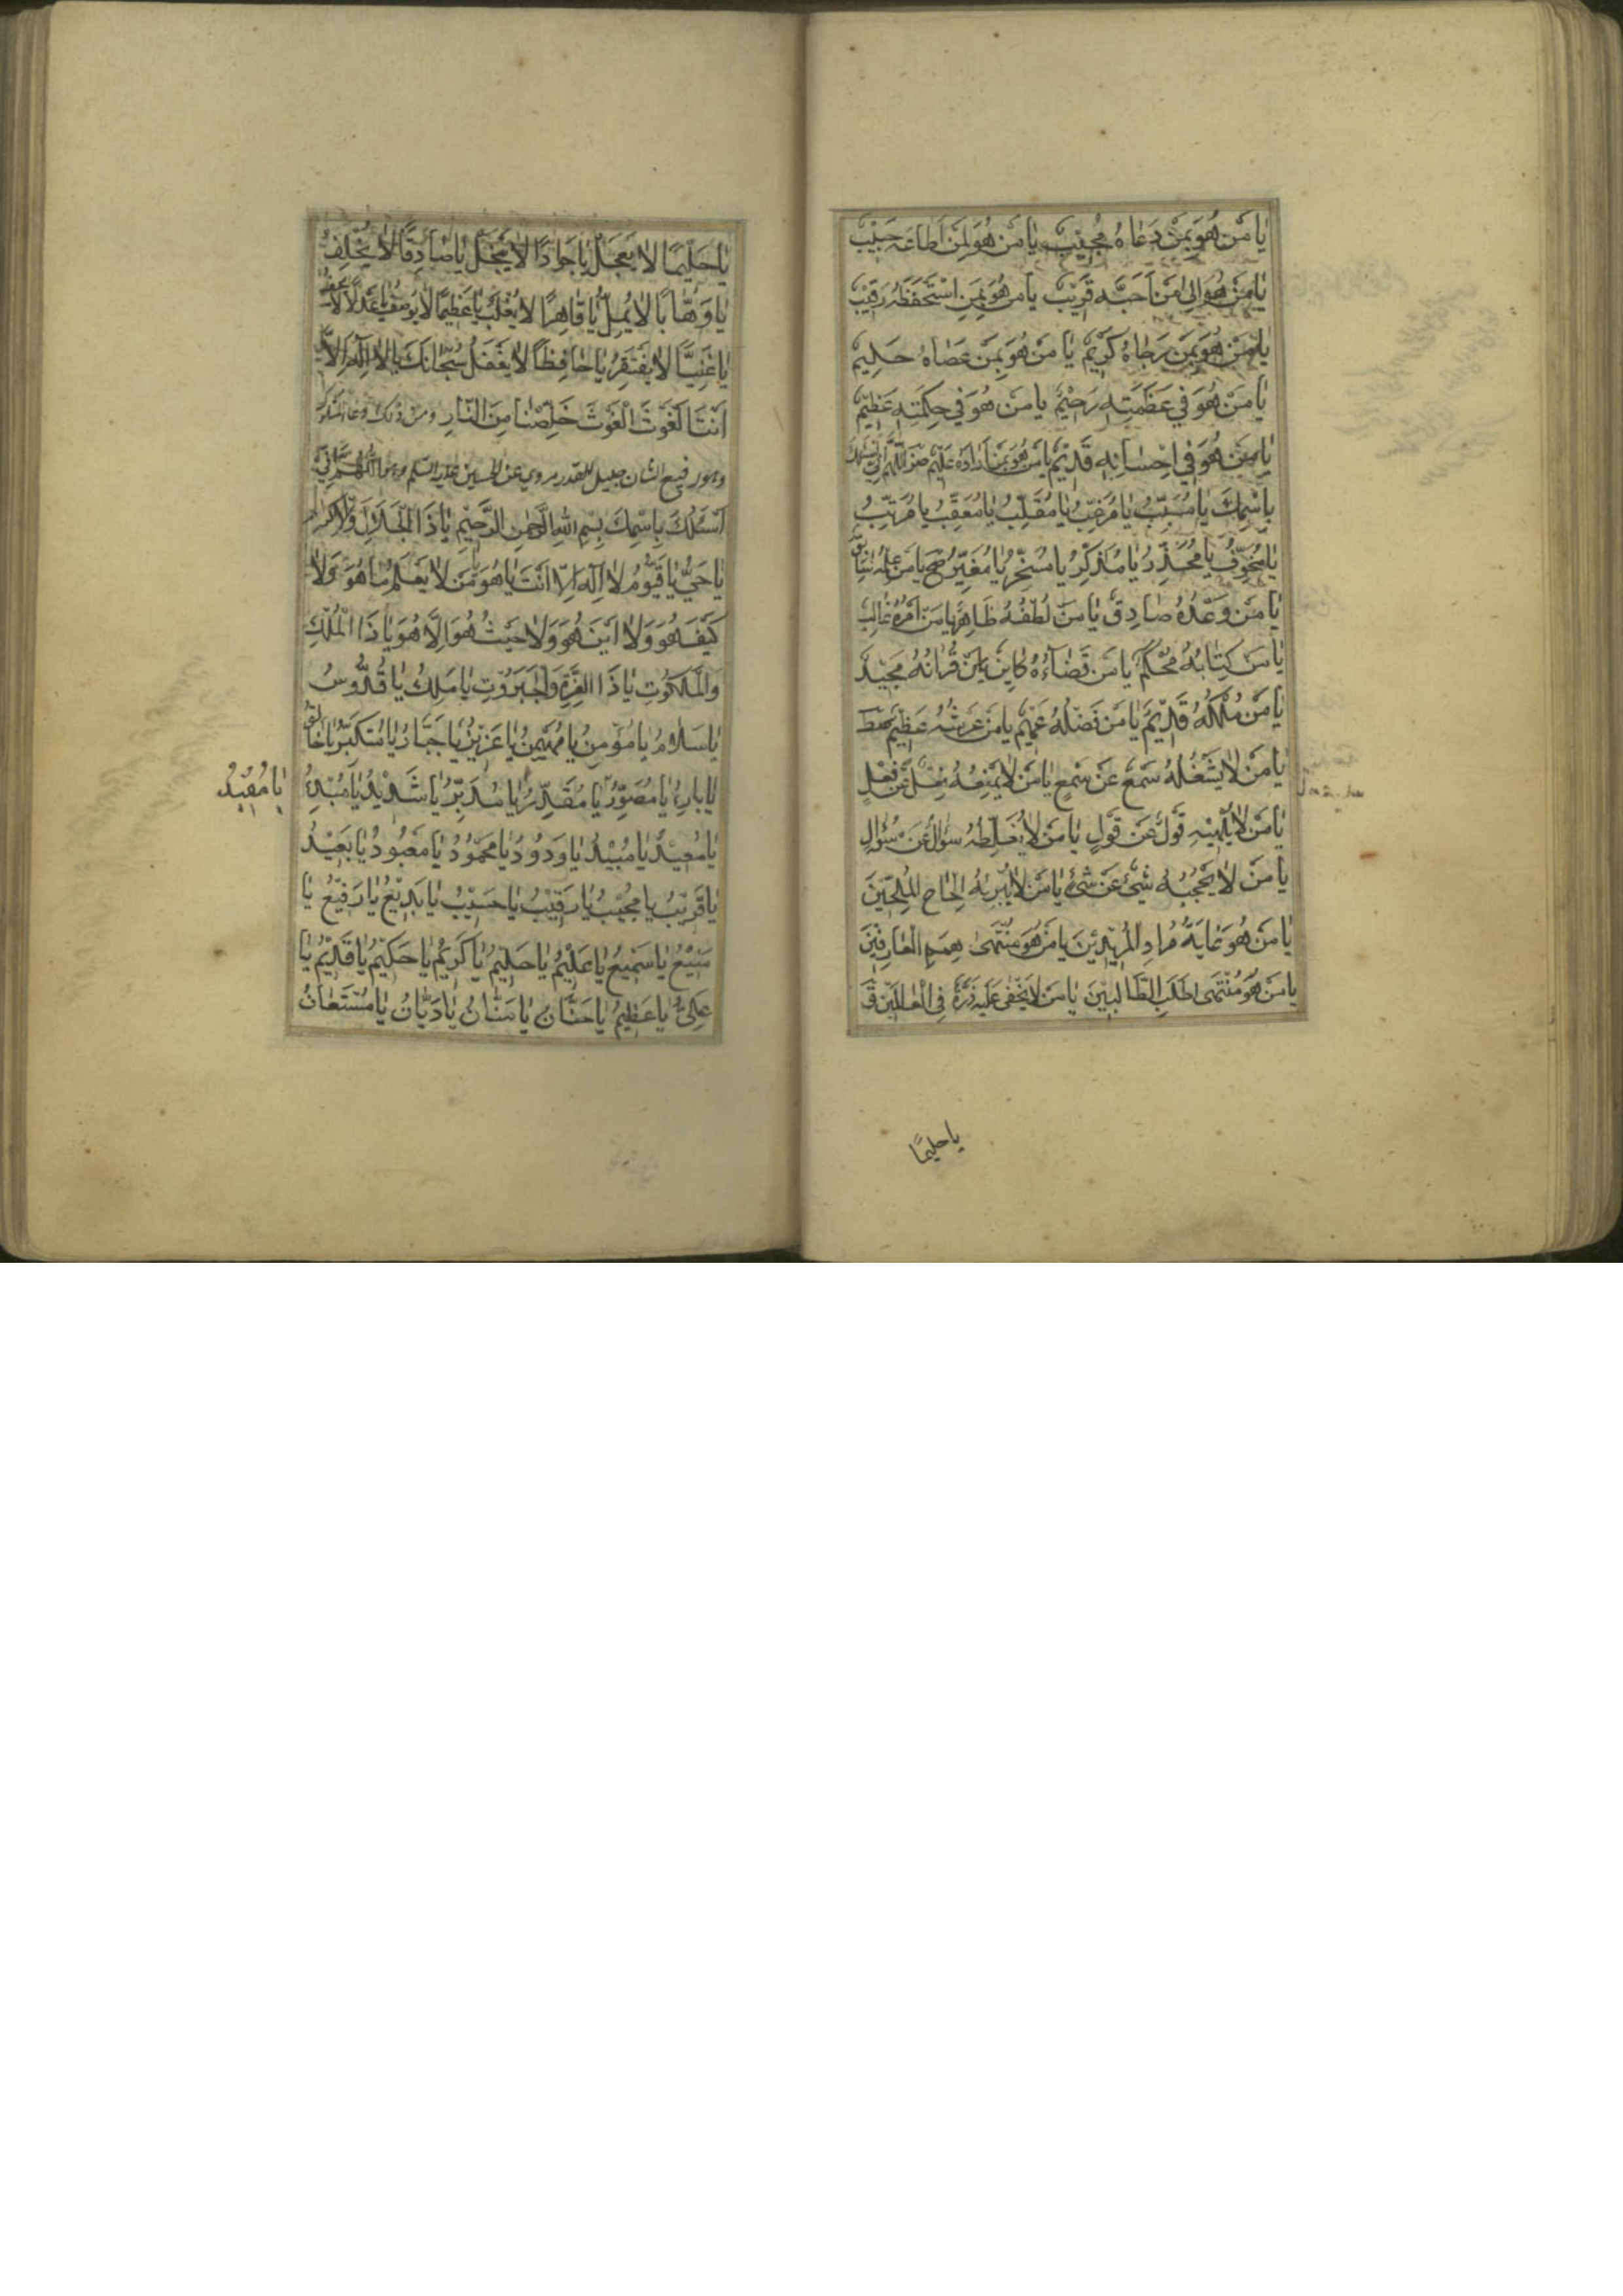 يَا مَنْ هُوَ بِمَنْ دَعَاهُ مُجِيبٌ يَا مَنْ هُوَ لِمَنْ اَطَاعَهُ حَبِيْبٌ
يَا مَنْ هُوَ اِلىٰ مَنْ اَحَبَّهُ قَرِيْبٌ يَا مَنْ هُوَ بِمَنِ اسْتَحْفَظَهُ رَقِيْبٌ
يَا مَنْ هُوَ بِمَنْ رَجَاهُ كَرِيْمٌ يَا مَنْ هُوَ بِمَنْ عَصَاهُ حَلِيمٌ
يَا مَنْ هُوَ فِي عَظَمَتِهِ رَحِيْمٌ يَا مَنْ هُوَ فِي حِكْمَتِهِ عَظِيْمٌ
يَا مَنْ هُوَ فِي اِحْسَانِهِ قَدِيْمٌ يَا مَنْ هُوَ بِمَنْ اَرَادَهُ عَلِيْمٌ اَللّٰهُمَّ اِنِّي اَسْئَلُكَ
بِاسْمِكَ يَا مُسَبِّبُ يَا مُرَغِّبُ يَا مُقَلِّبُ يَا مُعَقِّبُ يَا مُرَتِّبُ
يَا مُخَوِّفُ يَا مُحَذِّرُ يَا مُذَكِّرُ يَا مُسَخِّرُ يَا مُغَيِّرُ يَا مَنْ عِلْمُهُ سَابِقٌ
يَا مَنْ وَعْدُهُ صَادِقٌ يَا مَنْ لُطْفُهُ ظَاهِرٌ يَا مَنْ اَمْرُهُ غَالِبٌ
يَا مَنْ كِتَابُهُ مُحْكَمٌ يَا مَنْ قَضَاءُهُ كَايِنٌ يَا مَنْ قُرْانُهُ مَجِيْدٌ
يَا مَنْ مُلْكُهُ قَدِيْمٌ يَا مَنْ فَضْلُهُ عَمِيْمٌ يَا مَنْ عَرْشُهُ عَظِيْمٌ
يَا مَنْ لَا يَشْغَلُهُ سَمْعٌ عَنْ سَمْعٍ يَا مَنْ لَا يَمْنَعُهُ فِعْلٌ عَنْ فِعْلٍ
يَا مَنْ لَا يُلْهِيْهِ قَوْلٌ عَنْ قَوْلٍ يَا مَنْ لَا يُغَلِّطُهُ سُؤَالٌ عَنْ سُؤَالٍ
يَا مَنْ لَا يَحْجُبُهُ شَيْئٌ عَنْ شَيْئٍ يَا مَنْ لَا يُبْرِمُهُ اِلْحَاحُ الْمُلِحِّيْنَ
يَا مَنْ هُوَ غَايَةُ مُرَادِ الْمُرِيْدِيْنَ يَا مَنْ هُوَ مُنْتَهىٰ هِمَمِ الْعَارِفِيْنَ
يَا مَنْ هُوَ مُنْتَهىٰ طَلَبِ الطَّالِبِيْنَ يَا مَنْ لَا يَخْفىٰ عَلَيْهِ ذَرَّةٌ فِي الْعَالَمِيْنَ
يا حليمًا
يَا حَلِيْمًا لَا يَعْجَلُ يَا جَوَادًا لَا يَبْخَلُ يَا صَادِقًا لَا يُخْلِفُ
يَا وَهَّابًا لَا يَمِلُّ يَا قَاهِرًا لَا يُغْلَبُ يَا عَظِيْمًا لَا يُوْصَفُ يَا عَدْلًا لَا
يَا غَنِيًّا لَا يَفْتَقِرُ يَا حَافِظًا لَا يَغْفُلُ سُبْحَانَكَ يَا لَا اِلٰهَ اِلَّا
اَنْتَ الْغَوْثَ الْغَوْثَ خَلِّصْنَا مِنَ النَّارِ ومن ذلك دعاء
وهو رفيع الشان جليل القدر مروي عن الحسين عليه السلم وهو اَللّٰهُمَّ اِنِّيْ
اَسْئَلُكَ بِاسْمِكَ بِسْمِ اللهِ الرَّحْمٰنِ الرَّحِيْمِ يَا ذَا الْجَلَالِ وَالْاِكْرَامِ
يَا حَيُّ يَا قَيُّوْمُ لَا اِلٰهَ اِلَّا اَنْتَ يَا هُوَ يَا مَنْ لَا يَعْلَمُ مَا هُوَ وَلَا
كَيْفَ هُوَ وَلَا اَيْنَ هُوَ وَلَا حَيْثُ هُوَ اِلَّا هُوَ يَا ذَا الْمُلْكِ
وَالْمَلَكُوْتِ يَا ذَا الْعِزَّةِ وَالْجَبَرُوْتِ يَا مَلِكُ يَا قُدُّوسُ
يَا سَلَامُ يَا مُؤْمِنُ يَا مُهَيْمِنُ يَا عَزِيْزُ يَا جَبَّارُ يَا مُتَكَبِّرُ يَا خَالِقُ
يَا بَارِئُ يَا مُصَوِّرُ يَا مُقَدِّرُ يَا مُدَبِّرُ يَا شَدِيْدُ يَا مُبْدِئُ
يَا مُفِيْدُ
يَا مُعِيْدُ يَا مُبِيْدُ يَا وَدُوْدُ يَا مَحْمُوْدُ يَا مَعْبُوْدُ يَا بَعِيْدُ
يَا قَرِيْبُ يَا مُجِيْبُ يَا رَقِيْبُ يَا حَسِيْبُ يَا بَدِيْعُ يَا رَفِيْعُ يَا
مَنِيْعُ يَا سَمِيْعُ يَا عَلِيْمُ يَا حَلِيْمُ يَا كَرِيْمُ يَا حَكِيْمُ يَا قَدِيْمُ يَا
عَلِيُّ يَا عَظِيْمُ يَا حَنَّانُ يَا مَنَّانُ يَا دَيَّانُ يَا مُسْتَعَانُ